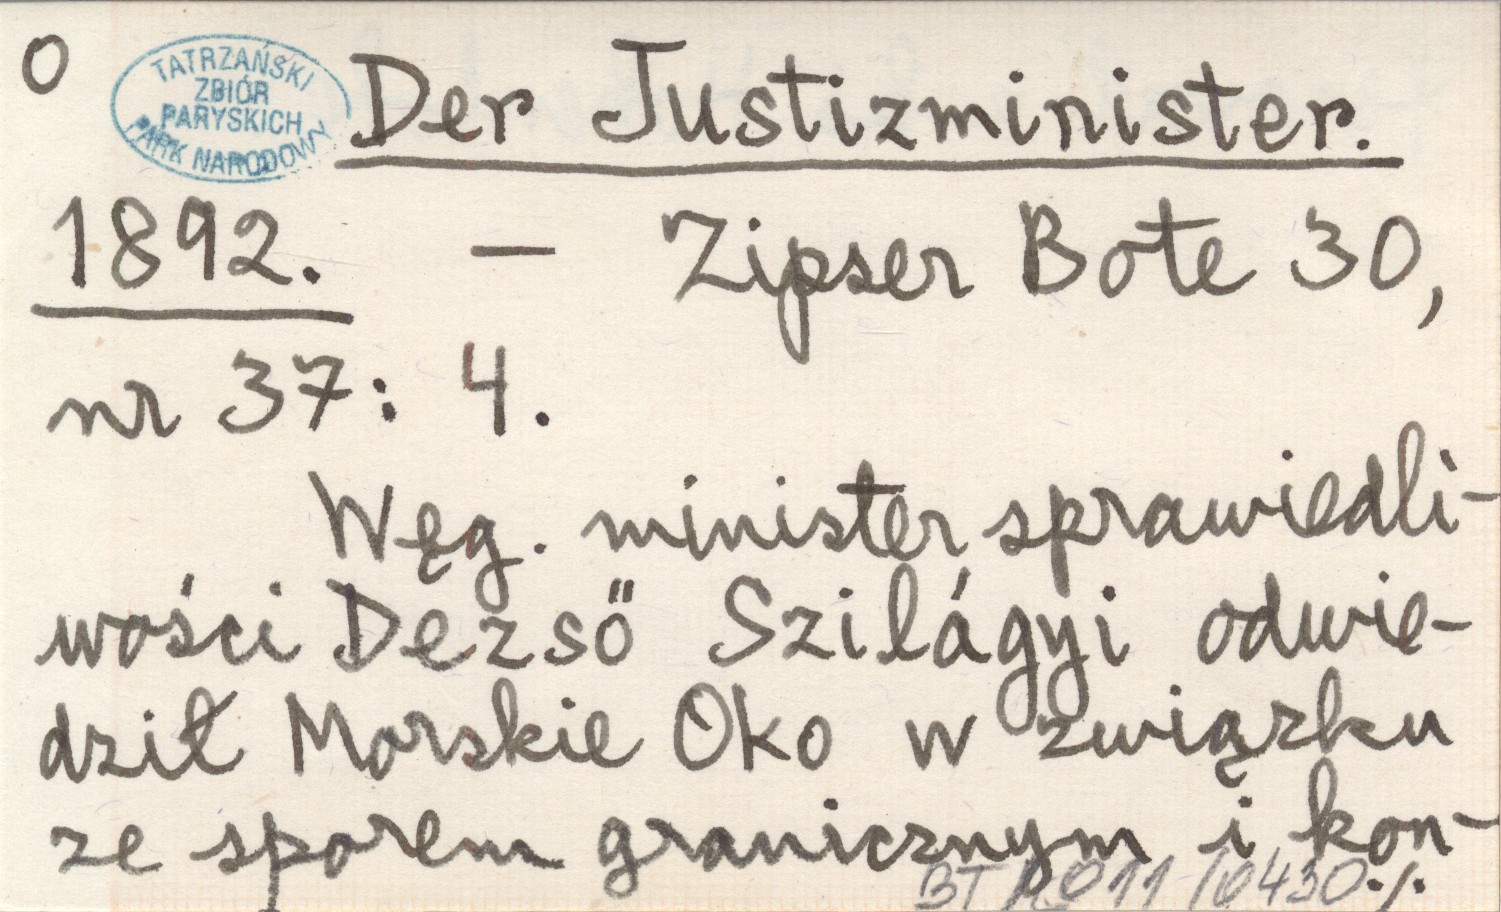 O
TATRZAŃSKI
ZBIÓR
PARYSKICH
PARK NARODOWY
Der Justizminister.
1892. — Zipser Bote 30,
nr 37: 4.
Węg. minister sprawiedli-
wości Dezső Szilágyi odwie-
dził Morskie Oko w związku
ze sporem granicznym i kon-
BT